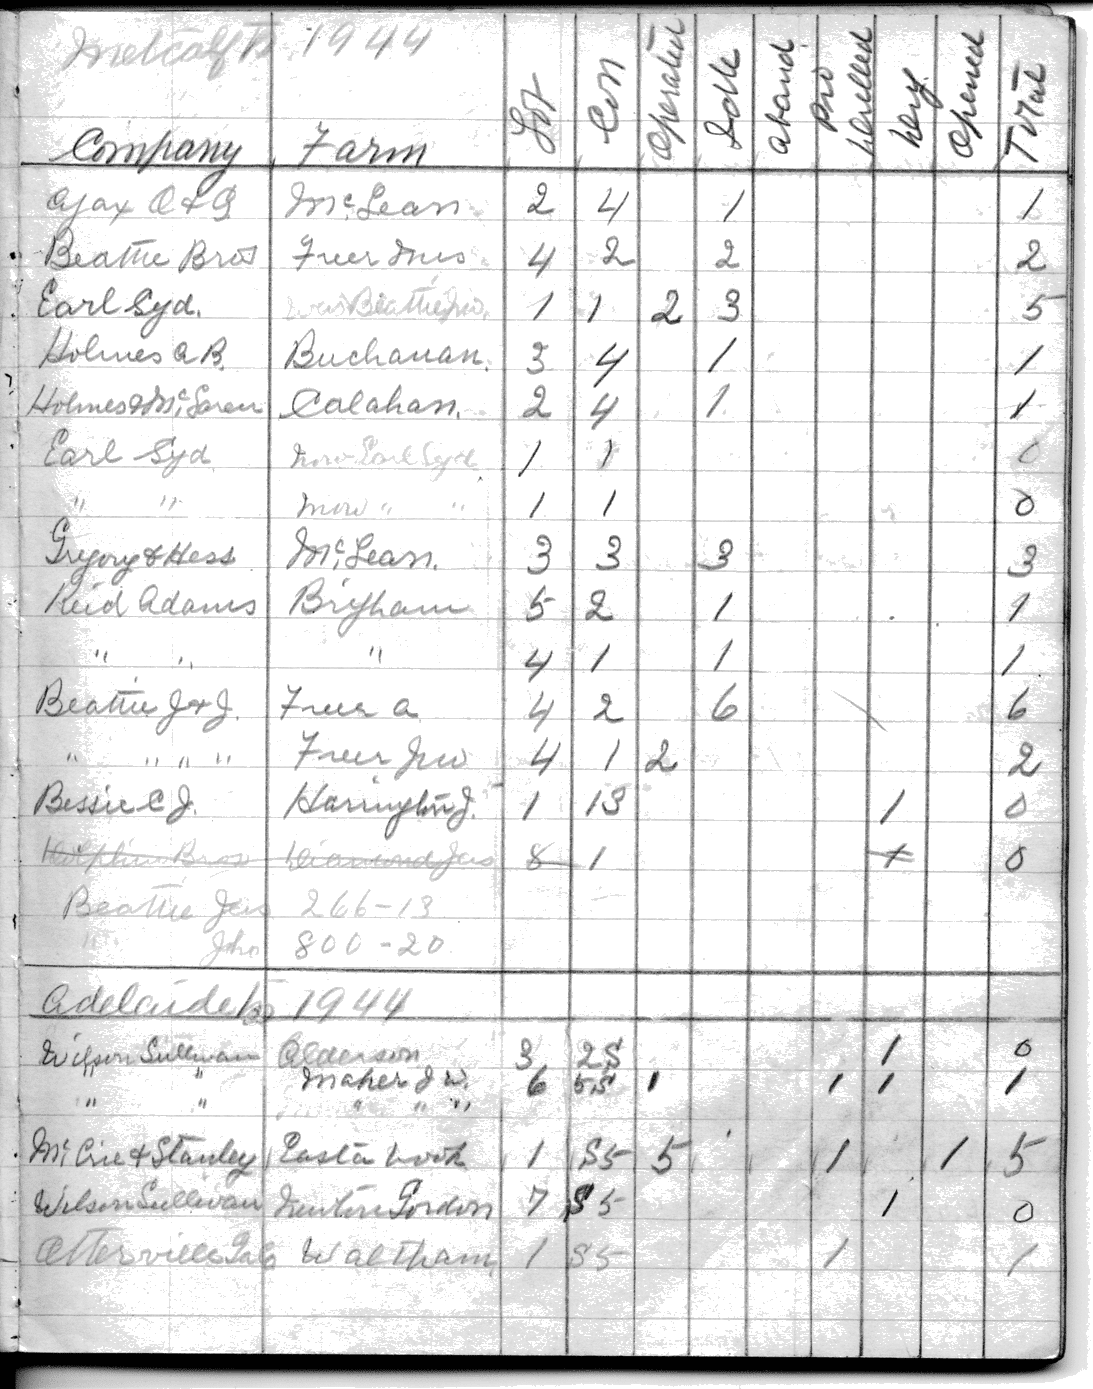 Metcalf Tp. 1944
Company Farm Lot Con Operated Idle aband. Pro Opened Total
Ajax O & G McLean 2 4 1 1
Beattie Bros Freer 4 2 2 2
Earl Syd. Beattie Jno. 1 1 2 3 5
Holmes A B. Buchanan. 3 4 1 1
Holmes & McLaren Calahan. 2 4 1 1
Earl Syd now Earl Syd 1 1 0
" " now " " 1 1 0
Gregory & Hess McLean. 3 3 3 3
Reid Adams Brigham 5 2 1 1
" " " 4 1 1 1
Beattie J & J. Freer A 4 2 6 6
" " " " Freer Jno 4 1 2 2
Bessie C J. Harrington J. 1 13 1 0
Bros Diamond Jas 8 1 1 0
Beattie Jas 266-13
" Jno 800-20
Adelaide Tp 1944
Wilson Sullivan Alderson 3 2S 1 0
" " Maher J W. 6 5S 1 1 1 1
" " " " "
McCrie & Stanley 1 S5 5 1 1 5
Wilson Sullivan Newton Gordon 7 S5 1 0
Otterville Waltham 1 S5 1 1